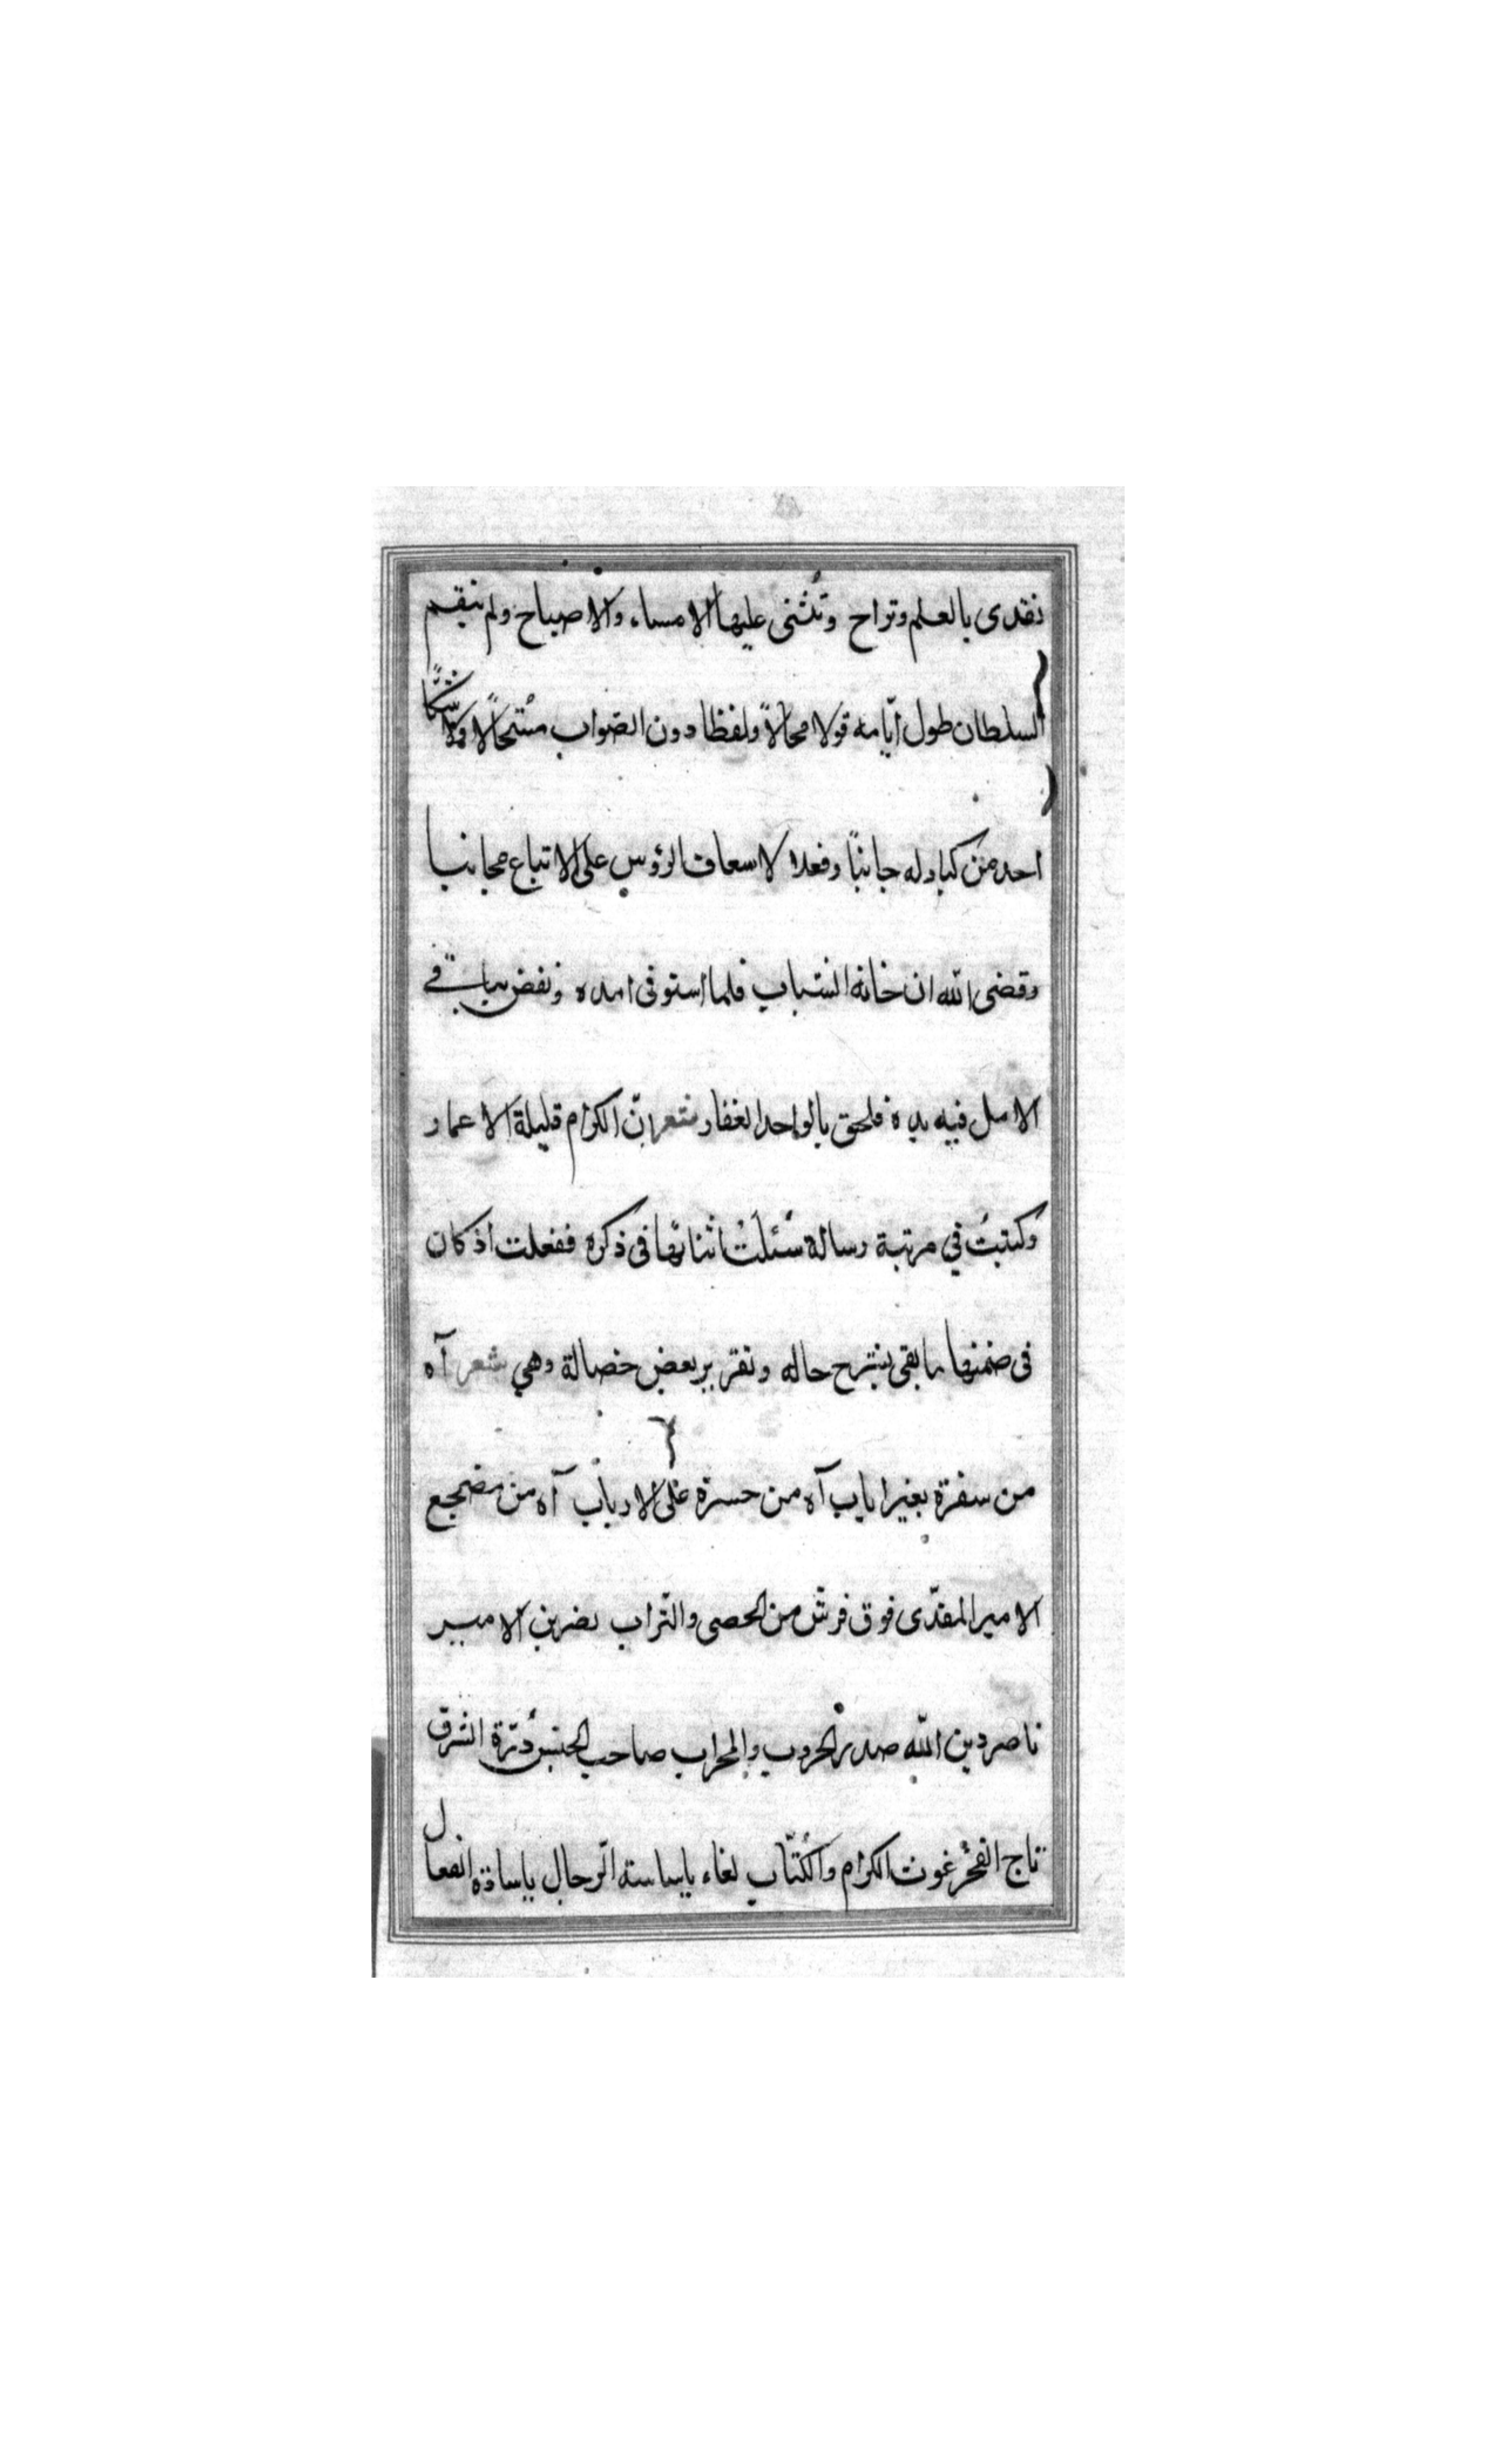 نغدى بالعلم وتراح وتثنى عليها الامساء والاصباح ولم ينقم
السلطان طول أيّامه قولا محالاً ولفظا دون الصّواب منتحَلاً ولا شكّا
احد من كباد له جانبًا وفعلا لاسعاف الرؤس على الاتباع مجانبا
وقضى الله ان خانه الشباب فلما استوفى امده ونفض بباقي
الامل فيه يده فلحق بالواحد الغفار شعر انّ الكرام قليلة الاعمار
وكتبتُ في مرتبة رسالة سُئلتُ اثنائها فى ذكره ففعلت اذ كان
فى ضمنها ما بقى بشرح حاله وتقرير بعض خصالة وهي شعر آه
من سفرة بغير اياب آه من حسرة على الارباب آه من مضجع
الامير المفدّى فوق فرش من الحصى والتّراب نصر بن الامير
ناصر دين الله صدر الحروب والمحراب صاحب الجيش دُرّة الشرق
تاج الفخر غوث الكرام والكُتّاب لغاء ياساسة الرجال ياسادة الفعال